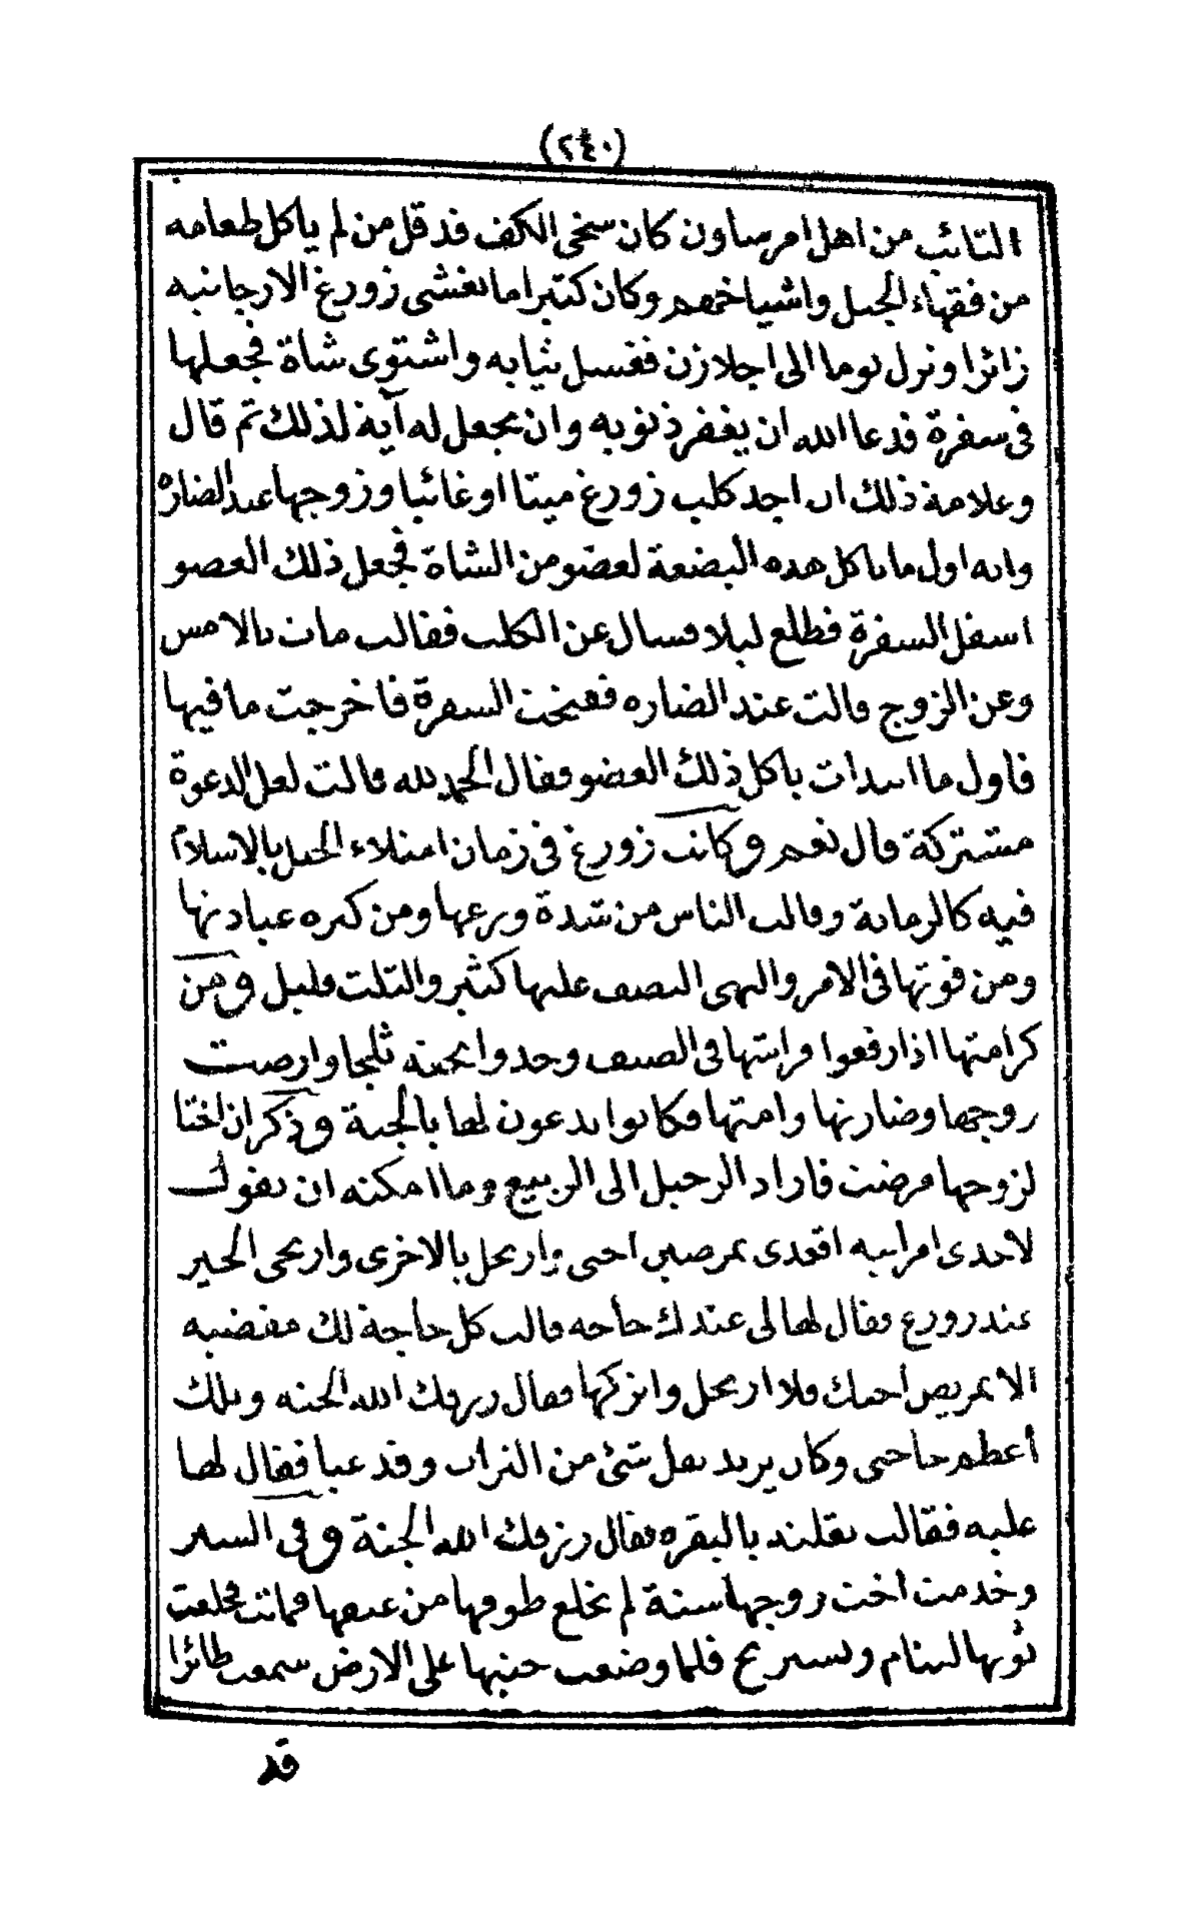 (٢٤٠)
التائب من اهل امرساون كان سخى الكف قد قل من لم ياكل طعامه
من فقهاء الجبل واشياخهم وكان كثيرا ما يغشى زورغ الارجانيه
زائرا ونزل يوما الى اجلازن فغسل ثيابه واشتوى شاة فجعلها
فى سفرة فدعا الله ان يغفر ذنوبه وان يجعل له آية لذلك ثم قال
وعلامة ذلك ان اجد كلب زورغ ميتا اوغائبا وزوجها عند الضاره
وانه اول ما ياكل هذه البضعة لعضو من الشاة فجعل ذلك العضو
اسفل السفرة فطلع ليلا فسال عن الكلب فقالت مات بالامس
وعن الزوج قالت عند الضاره ففتحت السفرة فاخرجت ما فيها
فاول ما ابتدات باكل ذلك العضو فقال الحمد لله قالت لعل الدعوة
مشتركة قال نعم وكانت زورغ فى زمان امتلاء الجبل بالاسلام
فيه كالرمانة وقالت الناس من شدة ورعها ومن كثره عبادتها
ومن قوتها فى الامر والنهى النصف عليها كثير والثلث قليل ومن
كرامتها اذا رفعوا فراشها فى الصيف وجدوا تحته ثلجا وارضت
زوجها وضارتها وامتها فكانوا يدعون لها بالجنة وذكر ان اختا
لزوجها مرضت فاراد الرحيل الى الربيع وما امكنه ان يقول
لاحدى امراتيه اقعدى تمرضين اختى وارتحل بالاخرى وارتجى الخير
عند زورغ فقال لها لى عندك حاجه قالت كل حاجة لك مقضية
الا تمريض اختك فلا ارتحل واتركها فقال رزقك الله الجنه وتلك
أعظم حاجتى وكان يريد نقل شئ من التراب وقد عيا فقال لها
عليه فقالت نقلته بالبقره فقال رزقك الله الجنة وفى السير
وخدمت اخت زوجها سنة لم تخلع طوقها من عنقها فماتت فخلعت
ثوبها لتنام وتستريح فلما وضعت جنبها على الارض سمعت طائرا
قد